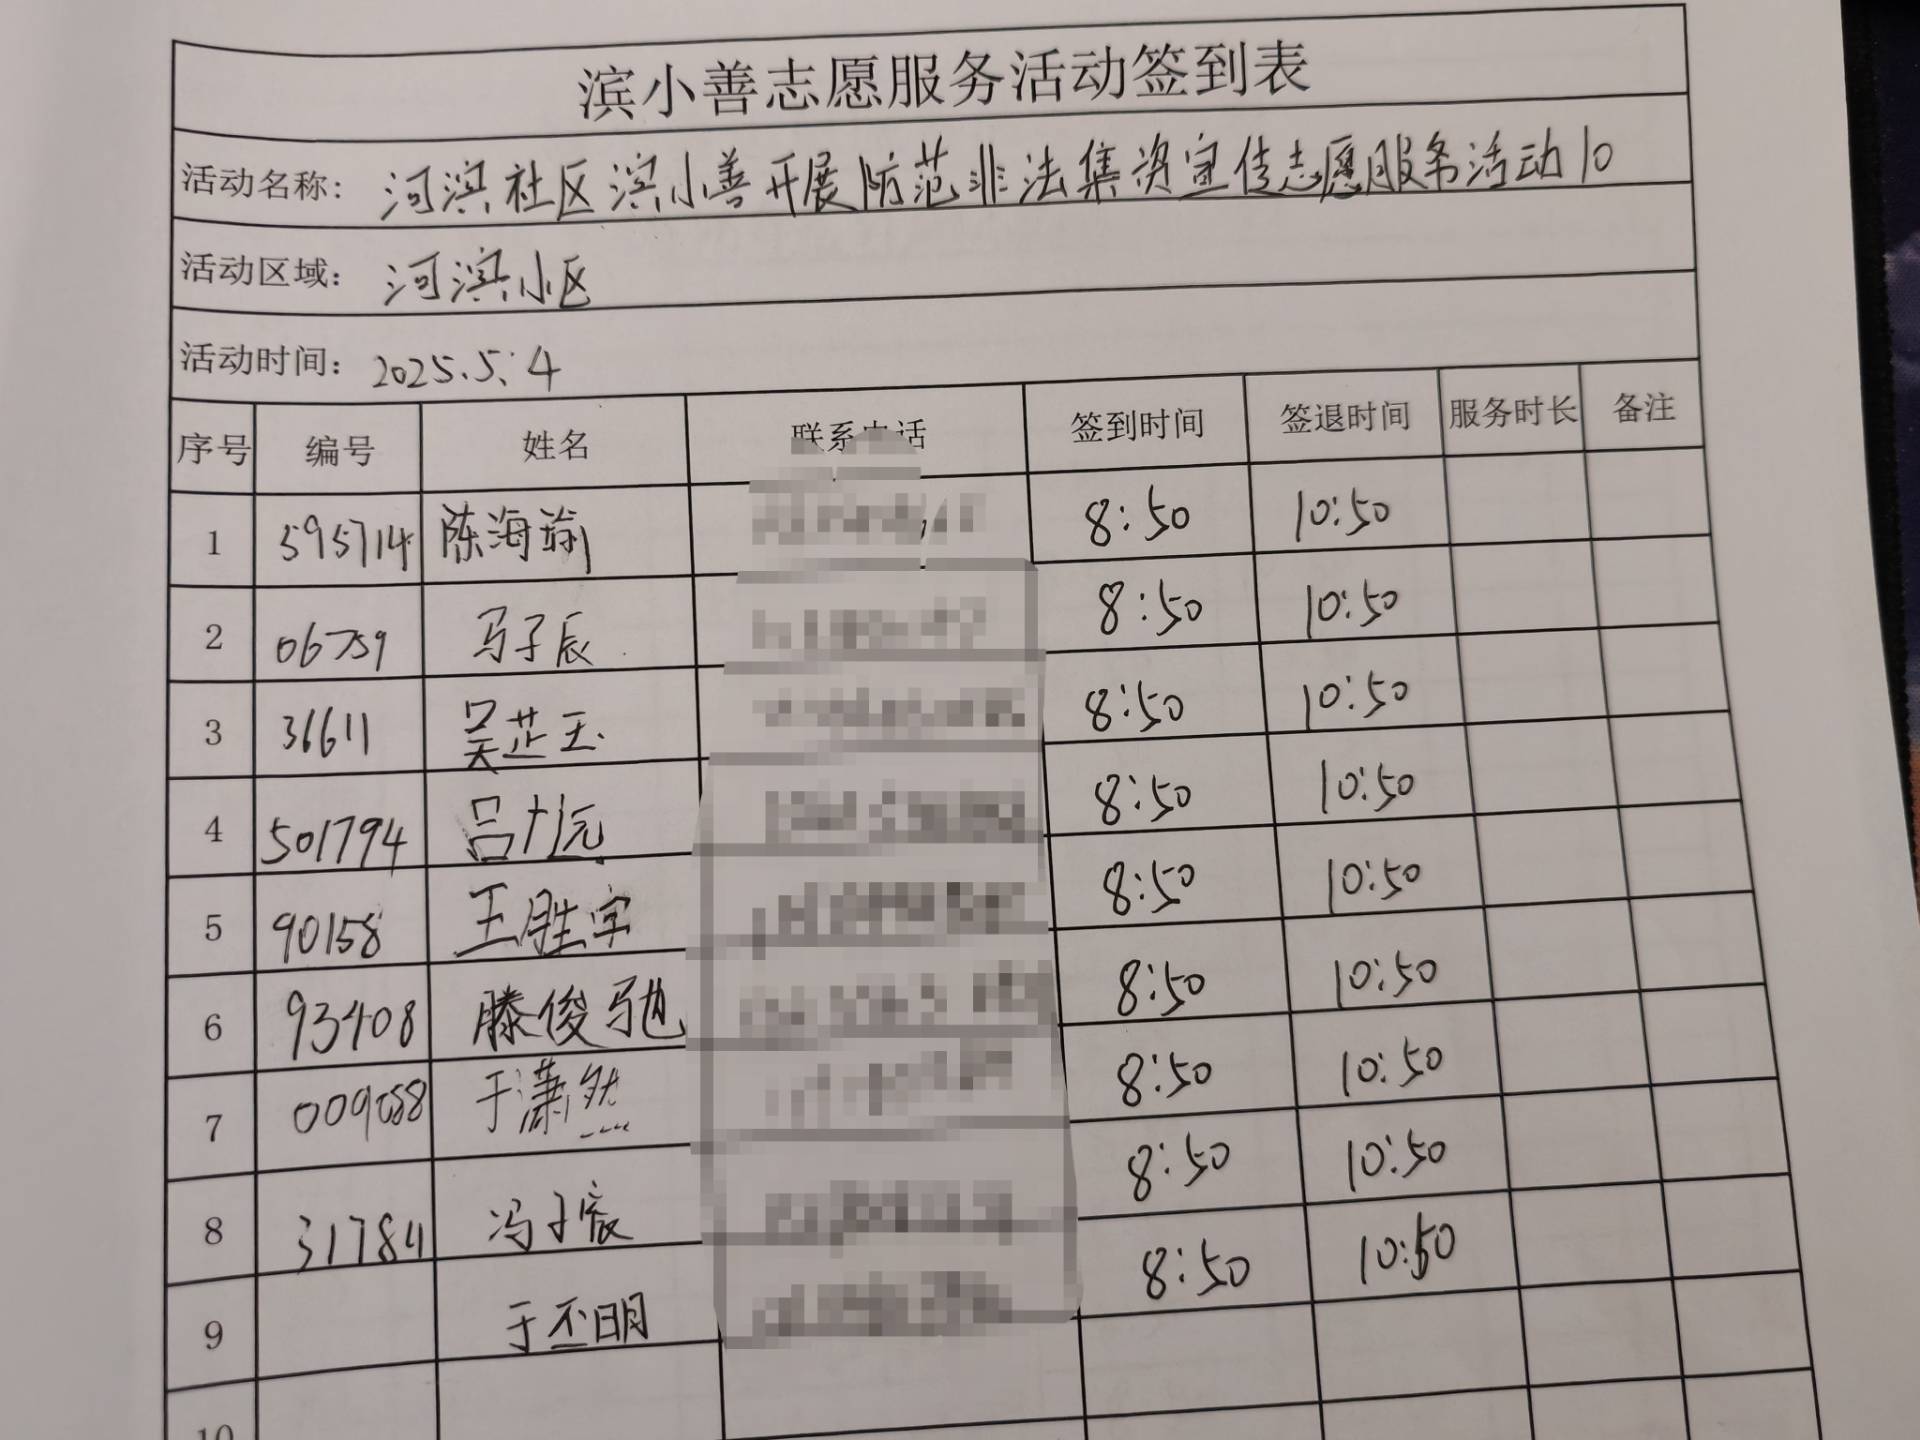 滨小善志愿服务活动签到表
活动名称: 河滨社区滨小善开展防范非法集资宣传志愿服务活动10
活动区域: 河滨小区
活动时间: 2025.5.4
序号 编号 姓名 联系电话 签到时间 签退时间 服务时长 备注
1 595714 陈海 8:50 10:50
2 06759 马子辰 8:50 10:50
3 36611 吴芷玉 8:50 10:50
4 501794 吕 8:50 10:50
5 90158 王胜宇 8:50 10:50
6 93408 滕俊驰 8:50 10:50
7 009058 于潇然 8:50 10:50
8 31784 冯子宸 8:50 10:50
9 于丕明 8:50 10:50
10